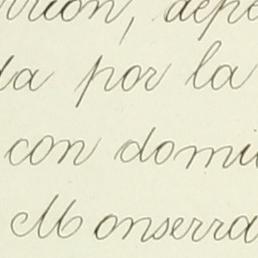 rrión, depe
da por la
con domi
Monserra